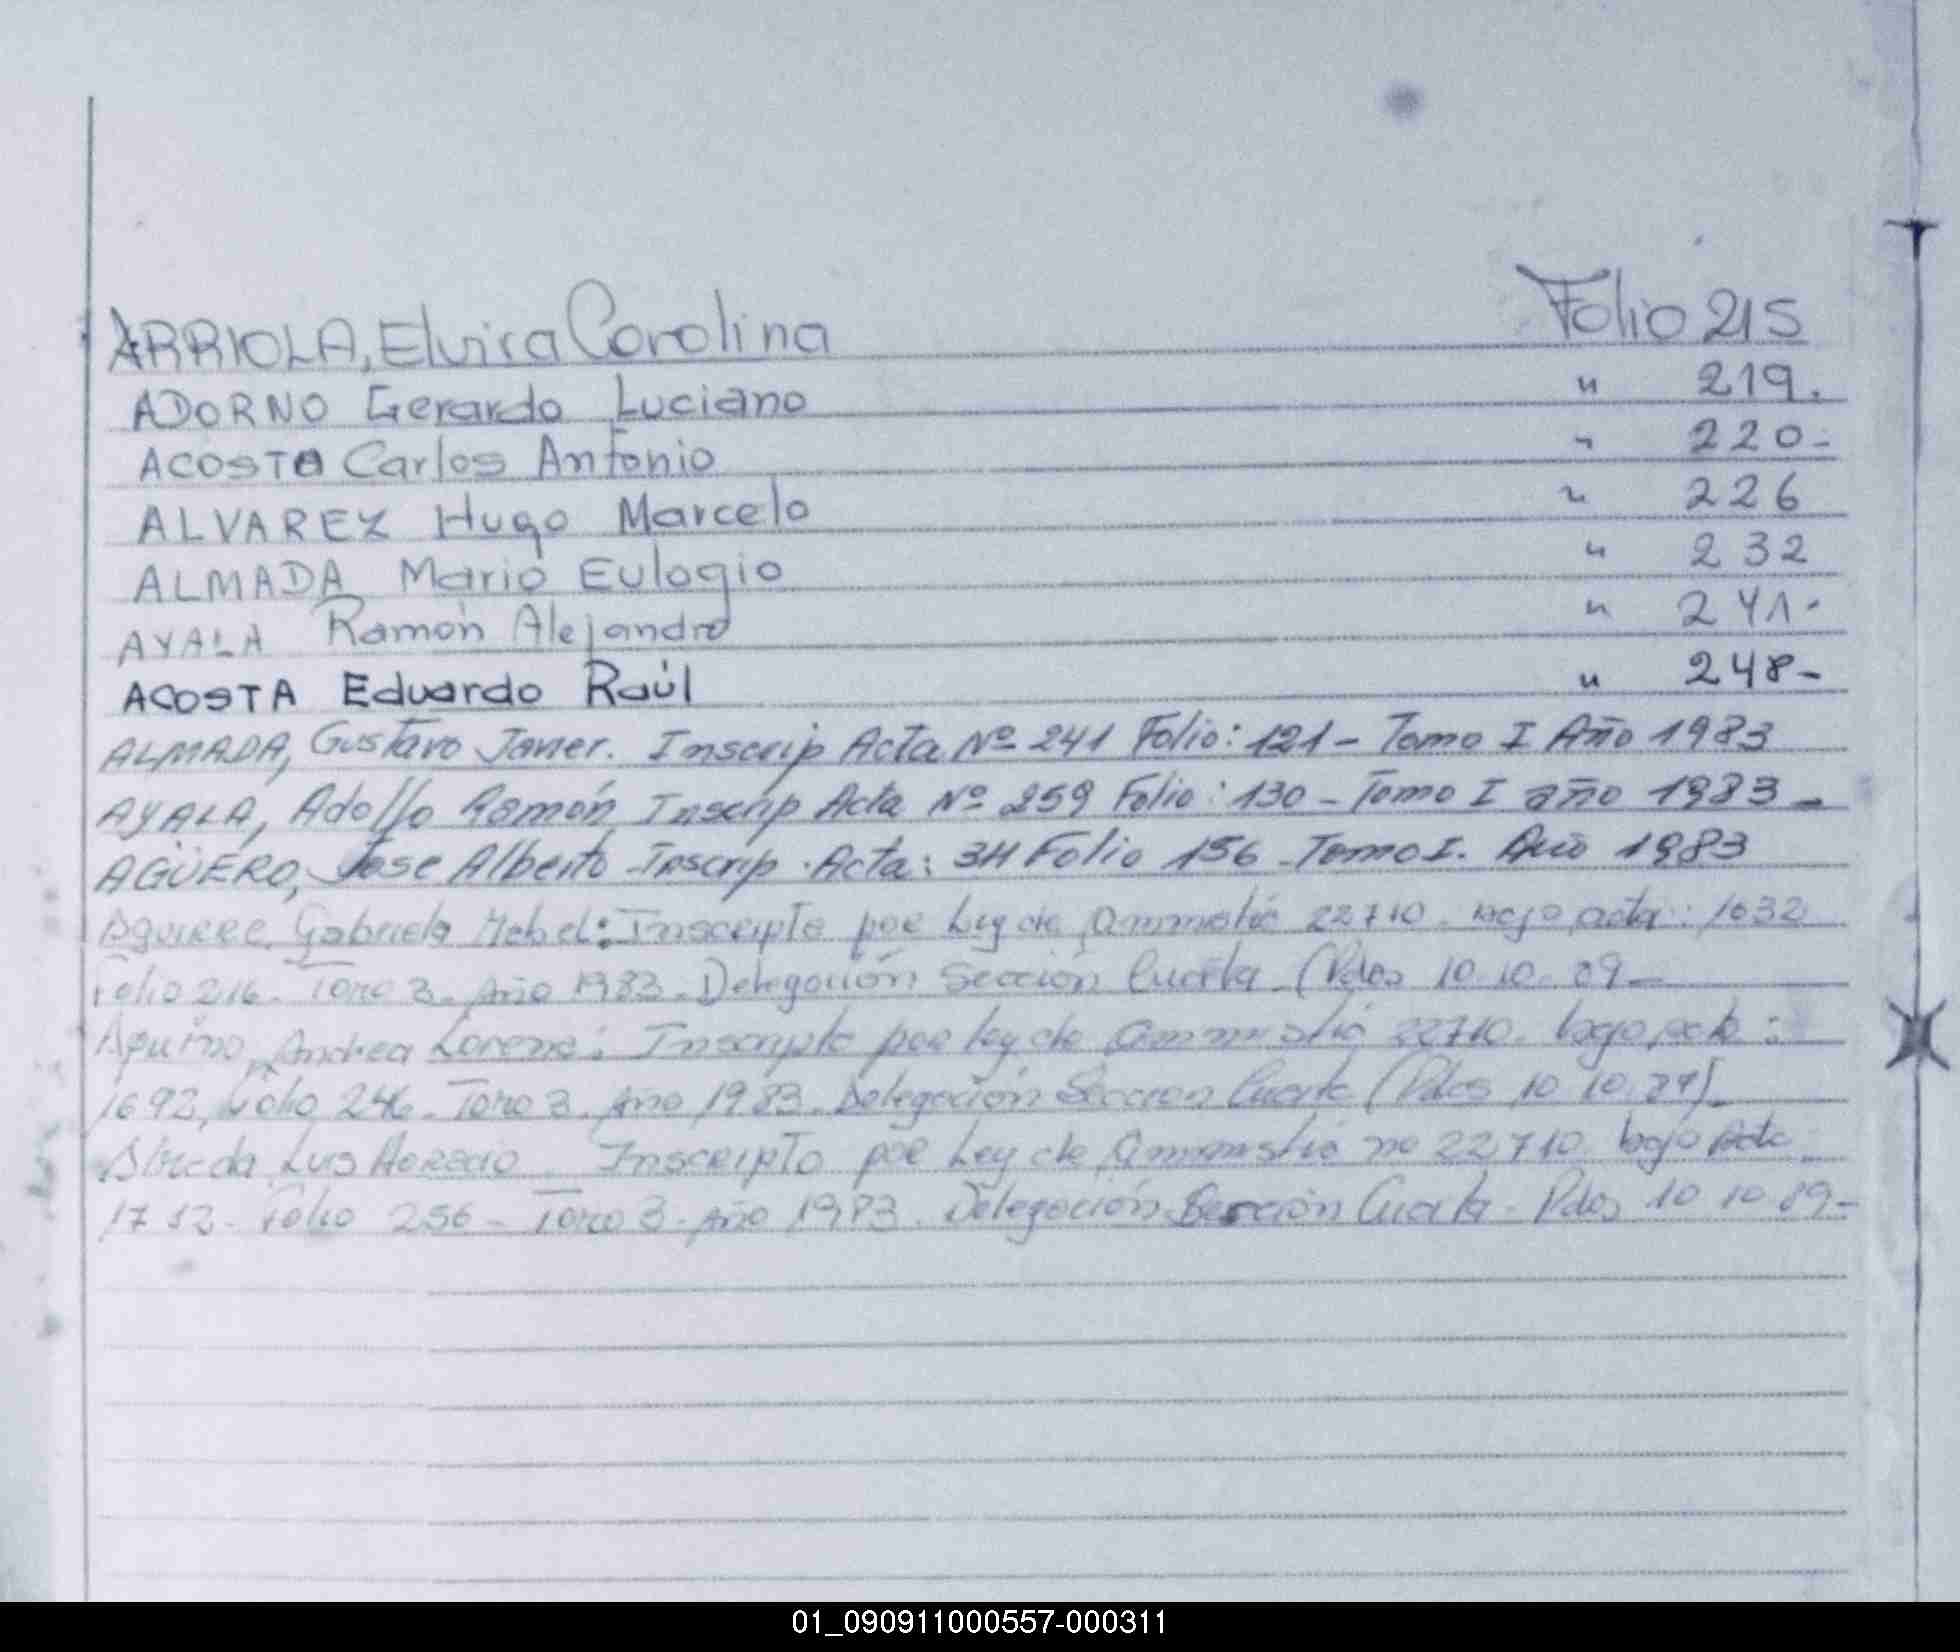 ARRIOLA, Elvira Carolina Folio 215
ADORNO Gerardo Luciano " 219.
ACOSTA Carlos Antonio " 220-
ALVAREZ Hugo Marcelo " 226
ALMADA Mario Eulogio " 232
AYALA Ramón Alejandro " 241-
ACOSTA Eduardo Raúl " 248-
ALMADA, Gustavo Javier. Inscrip Acta Nº 241 Folio: 121 - Tomo I Año 1983
AYALA, Adolfo Ramón Inscrip Acta Nº 259 Folio: 130 - Tomo I año 1983 -
AGÜERO, Jose Alberto Inscrip. Acta: 311 Folio 156 - Tomo I. Año 1983
Aguirre Gabriela Mebel: Inscripta por Ley de Amnistía 22710. bajo acta: 1632
Folio 216. Tomo 3. Año 1983. Delegación Sección Cuarta. (Pdas 10.10.89-
Aquino, Andrea Lorena: Inscripta por ley de amnistía 22710. bajo acta:
1692, Folio 246. Tomo 3. Año 1983. Delegación Sección Cuarta (Pdas 10 10.89)-
Luis Horacio. Inscripto por Ley de amnistía no 22710. bajo Acta
1712. Folio 256 - Tomo 3. Año 1983. Delegación Sección Cuarta. Pdas 10 10 89-
01_090911000557-000311